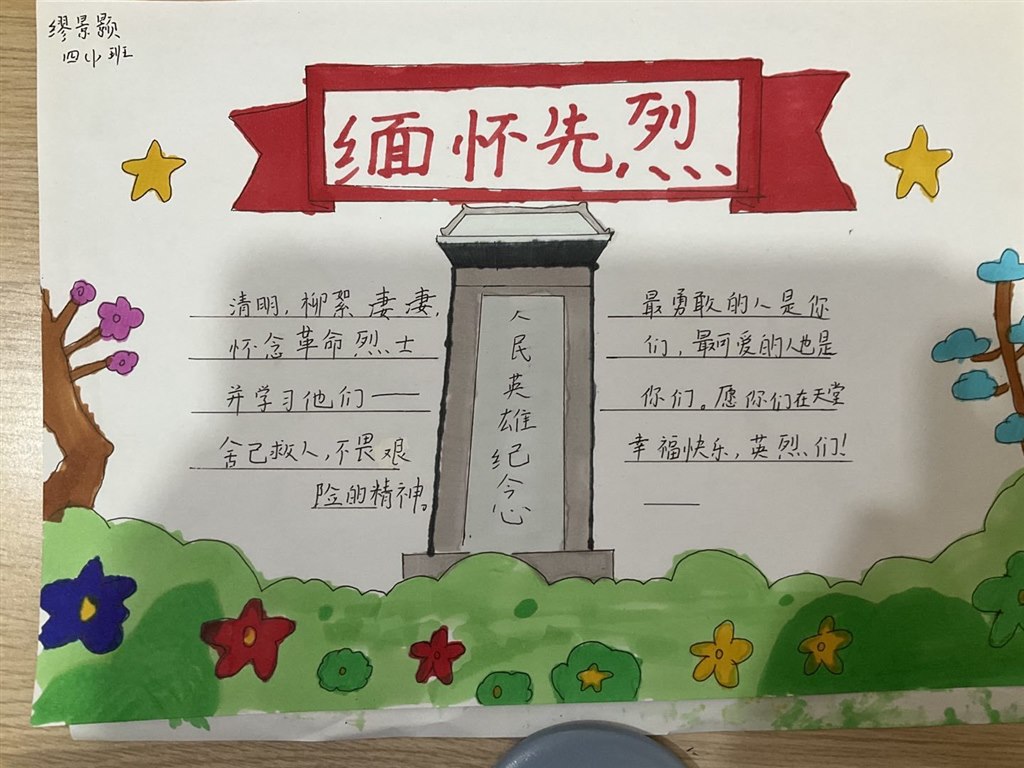 缪景颢
四小班
缅怀先烈
清明，柳絮凄凄，
怀念革命烈士
并学习他们——
舍己救人，不畏艰
险的精神。
人民英雄纪念
最勇敢的人是你
们，最可爱的人也是
你们。愿你们在天堂
幸福快乐，英烈们！